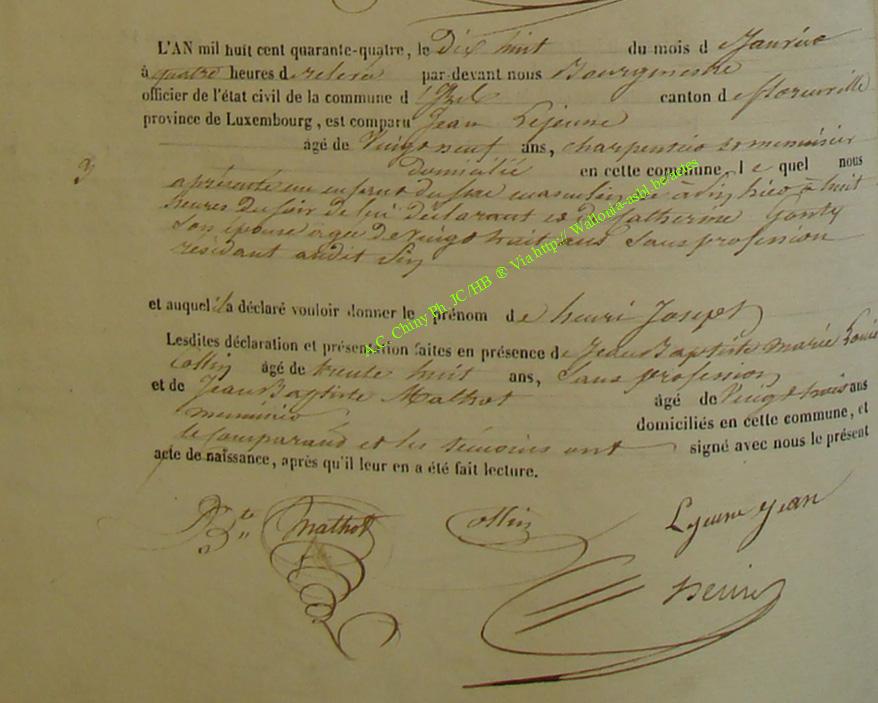 L'AN mil huit cent quarante-quatre, le Dix huit du mois de Janvier
à quatre heures de relevée par-devant nous Bourgmestre
officier de l'état civil de la commune d'Izel canton de florenville
province de Luxembourg, est comparu Jean Lejeune
âgé de Vingt neuf ans, charpentier et menuisier
domicilié en cette commune, le quel nous
3
a présenté un enfant du sexe masculin né à hier à huit
heures du soir de lui déclarant et de Catherine Gonty
son épouse agée de vingt huit ans sans profession
résidant audit
et auquel il a déclaré vouloir donner le prénom de henri Joseph
Lesdites déclaration et présentation faites en présence de Jean Baptiste marie Louis
Collin âgé de trente huit ans, sans profession
et de Jean Baptiste Mathot âgé de vingt trois ans
menuisier domiciliés en cette commune, et
le Comparant et les témoins ont signé avec nous le présent
acte de naissance, après qu'il leur en a été fait lecture.
Mathot Collin Lejeune Jean
A.C. Chiny Ph. JC/HB ® Via http// Wallonia-asbl.be/actes